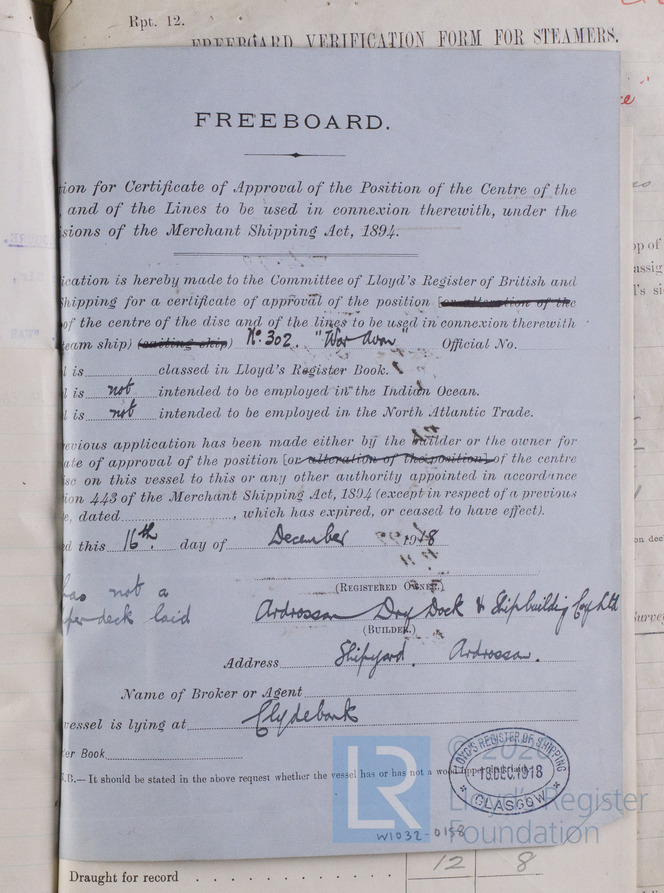 Rpt. 12.
FREEBOARD VERIFICATION FORM FOR STEAMERS.
FREEBOARD.
tion for Certificate of Approval of the Position of the Centre of the
, and of the Lines to be used in connexion therewith, under the
isions of the Merchant Shipping Act, 1894.
lication is hereby made to the Committee of Lloyd's Register of British and
Shipping for a certificate of approval of the position [or alteration of the
of the centre of the disc and of the lines to be used in connexion therewith
team ship) (sailing ship) No. 302. "War Avon" Official No.
l is classed in Lloyd's Register Book.
l is not intended to be employed in the Indian Ocean.
l is not intended to be employed in the North Atlantic Trade.
evious application has been made either by the builder or the owner for
ate of approval of the position [or alteration of the position] of the centre
isc on this vessel to this or any other authority appointed in accordance
ion 443 of the Merchant Shipping Act, 1894 (except in respect of a previous
e, dated , which has expired, or ceased to have effect).
d this 16th day of December 1918
(REGISTERED OWNER.)
has not a
per deck laid
Ardrossan Dry Dock & Shipbuilding Coy Ltd
(BUILDER.)
Address Shipyard. Ardrossan.
Name of Broker or Agent
vessel is lying at Clydebank
ter Book
N.B.—It should be stated in the above request whether the vessel has or has not a wood upper
LLOYD'S REGISTER OF SHIPPING
18 DEC 1918
GLASGOW
LR
Lloyd's Register
Foundation
W1032-0158
Draught for record 12 8